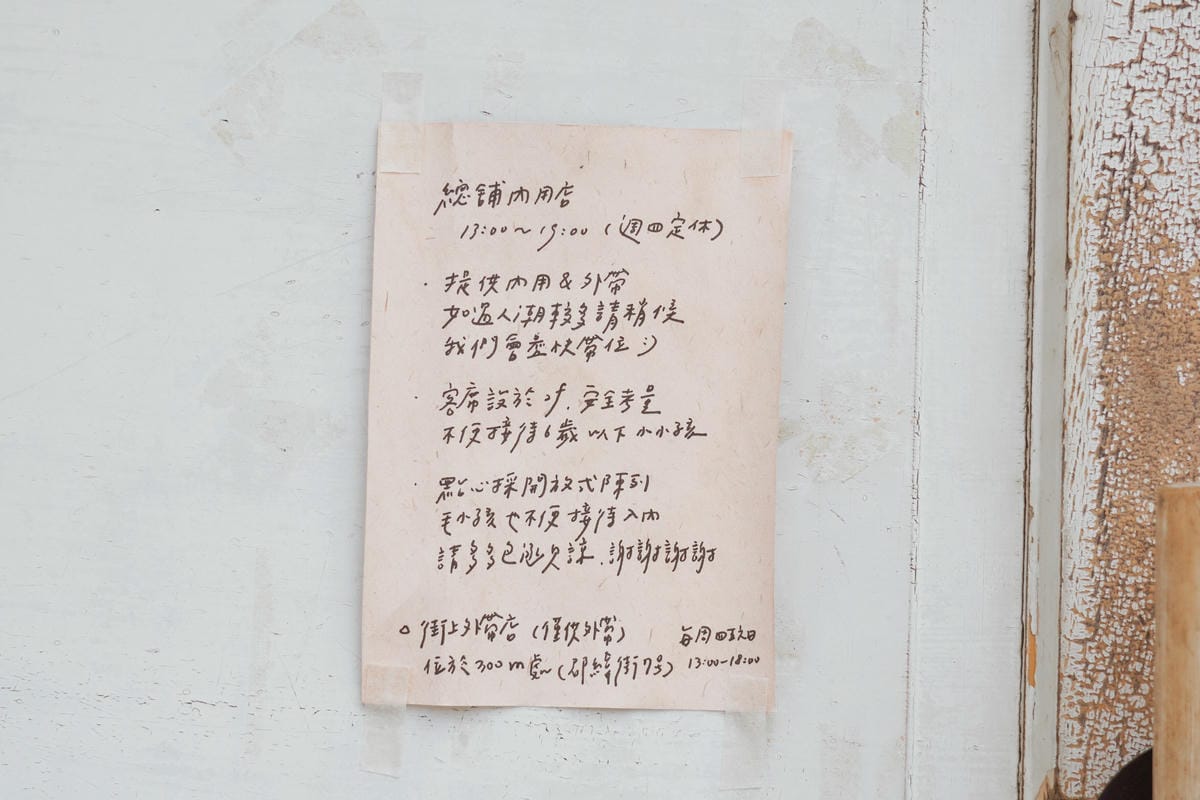 總舖內用店
13:00~19:00 (週四定休)
· 提供內用&外帶
如遇人潮較多請稍候
我們會盡快帶位 :)
· 客席設於2f. 安全考量
不便接待6歲以下小小孩
· 點心採開放式陳列
毛小孩也不便接待入內
請多多包涵見諒.謝謝謝謝
△ 街上外帶店 (僅供外帶) 每周四五六日
位於300m處 (邵緯街7号) 13:00-18:00